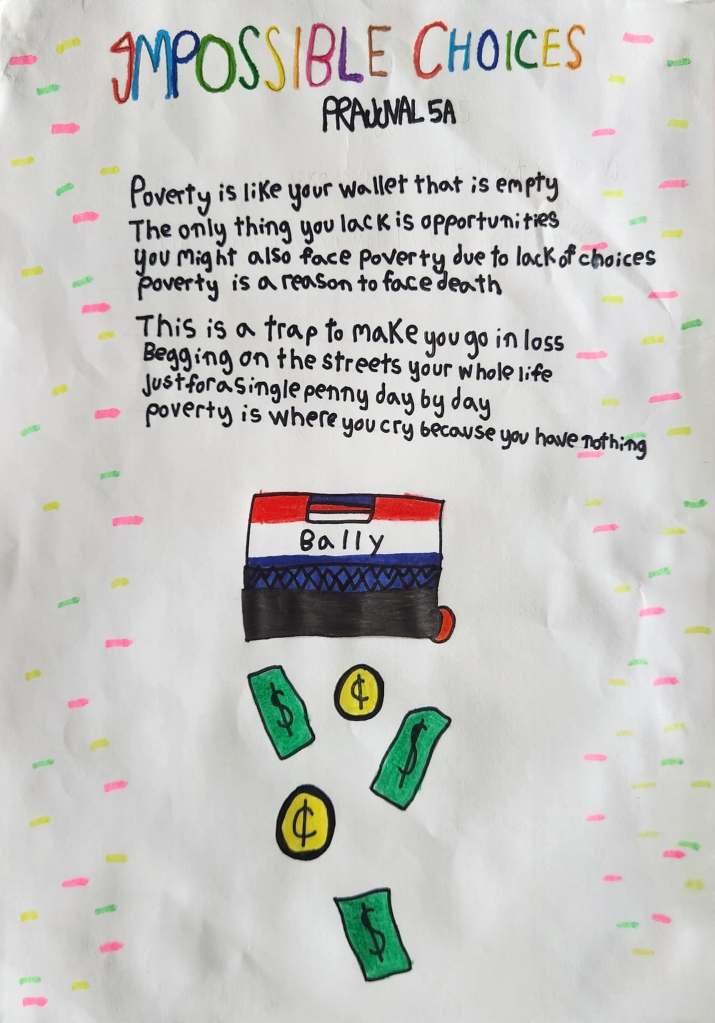 IMPOSSIBLE CHOICES
PRAJVAL 5A
Poverty is like your wallet that is empty
The only thing you lack is opportunities
you might also face poverty due to lack of choices
poverty is a reason to face death
This is a trap to make you go in loss
Begging on the streets your whole life
just for a single penny day by day
poverty is where you cry because you have nothing
Bally
$ ¢
$
¢
$